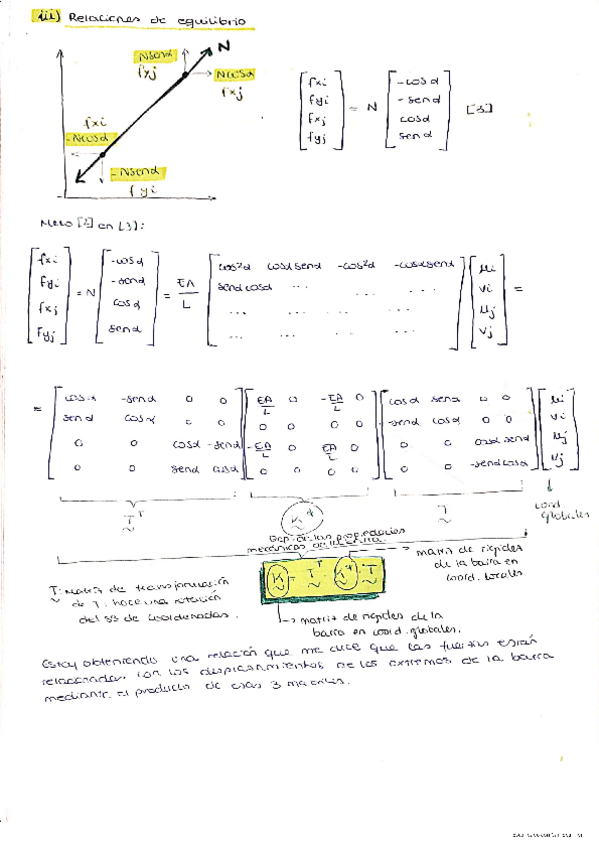 iii) Relaciones de equilibrio
N
Nsenα
fyj
Ncosα
fxj
fxi
-Ncosα
-Nsenα
fyi
[fxi fyi fxj fyj] = N [-cosα -senα cosα senα] [3]
Meto [2] en [3]:
[fxi fyi fxj fyj] = N [-cosα -senα cosα senα] = EA/L [cos²α cosα senα -cos²α -cosα senα
senα cosα ... ... ...
... ... ... ...
... ... ... ...] [ui vi uj vj] =
= [cosα -senα 0 0] [EA/L 0 -EA/L 0] [cosα senα 0 0] [ui]
[senα cosα 0 0] [0 0 0 0] [-senα cosα 0 0] [vi]
[0 0 cosα -senα] [-EA/L 0 EA/L 0] [0 0 cosα senα] [uj]
[0 0 senα cosα] [0 0 0 0] [0 0 -senα cosα] [vj]
T^T
K*
T
coord
globales
Dep. de las propiedades
mecánicas
K = T^T K* T
matriz de rigidez
de la barra en
coord. locales.
T: Matriz de transformación
de T: hace una rotación
del SS de coordenadas.
matriz de rigidez de la
barra en coord. globales.
Estoy obteniendo una relación que me dice que las fuerzas están
relacionadas con los desplazamientos de los extremos de la barra
mediante el producto de esas 3 matrices.